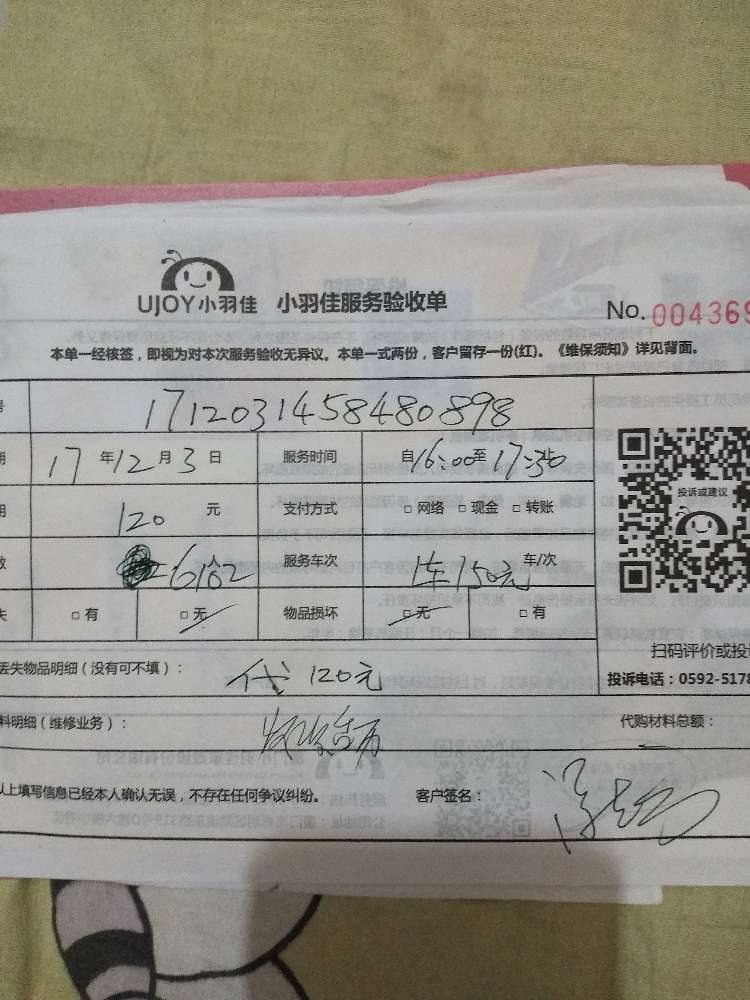 UJOY小羽佳 小羽佳服务验收单 No. 004369
本单一经核签，即视为对本次服务验收无异议。本单一式两份，客户留存一份(红)。《维保须知》详见背面。
号 1712031458480898
期 17 年 12 月 3 日 服务时间 自 16:00 至 17:30
用 120 元 支付方式 □ 网络 □ 现金 □ 转账
数 服务车次 1车150元 车/次
失 □ 有 □ 无 物品损坏 □ 无 □ 有
投诉或建议
扫码评价或投诉
投诉电话：0592-5178
丢失物品明细（没有可不填）： 代 120元
料明细（维修业务）： 代购材料总额：
以上填写信息已经本人确认无误，不存在任何争议纠纷。 客户签名：